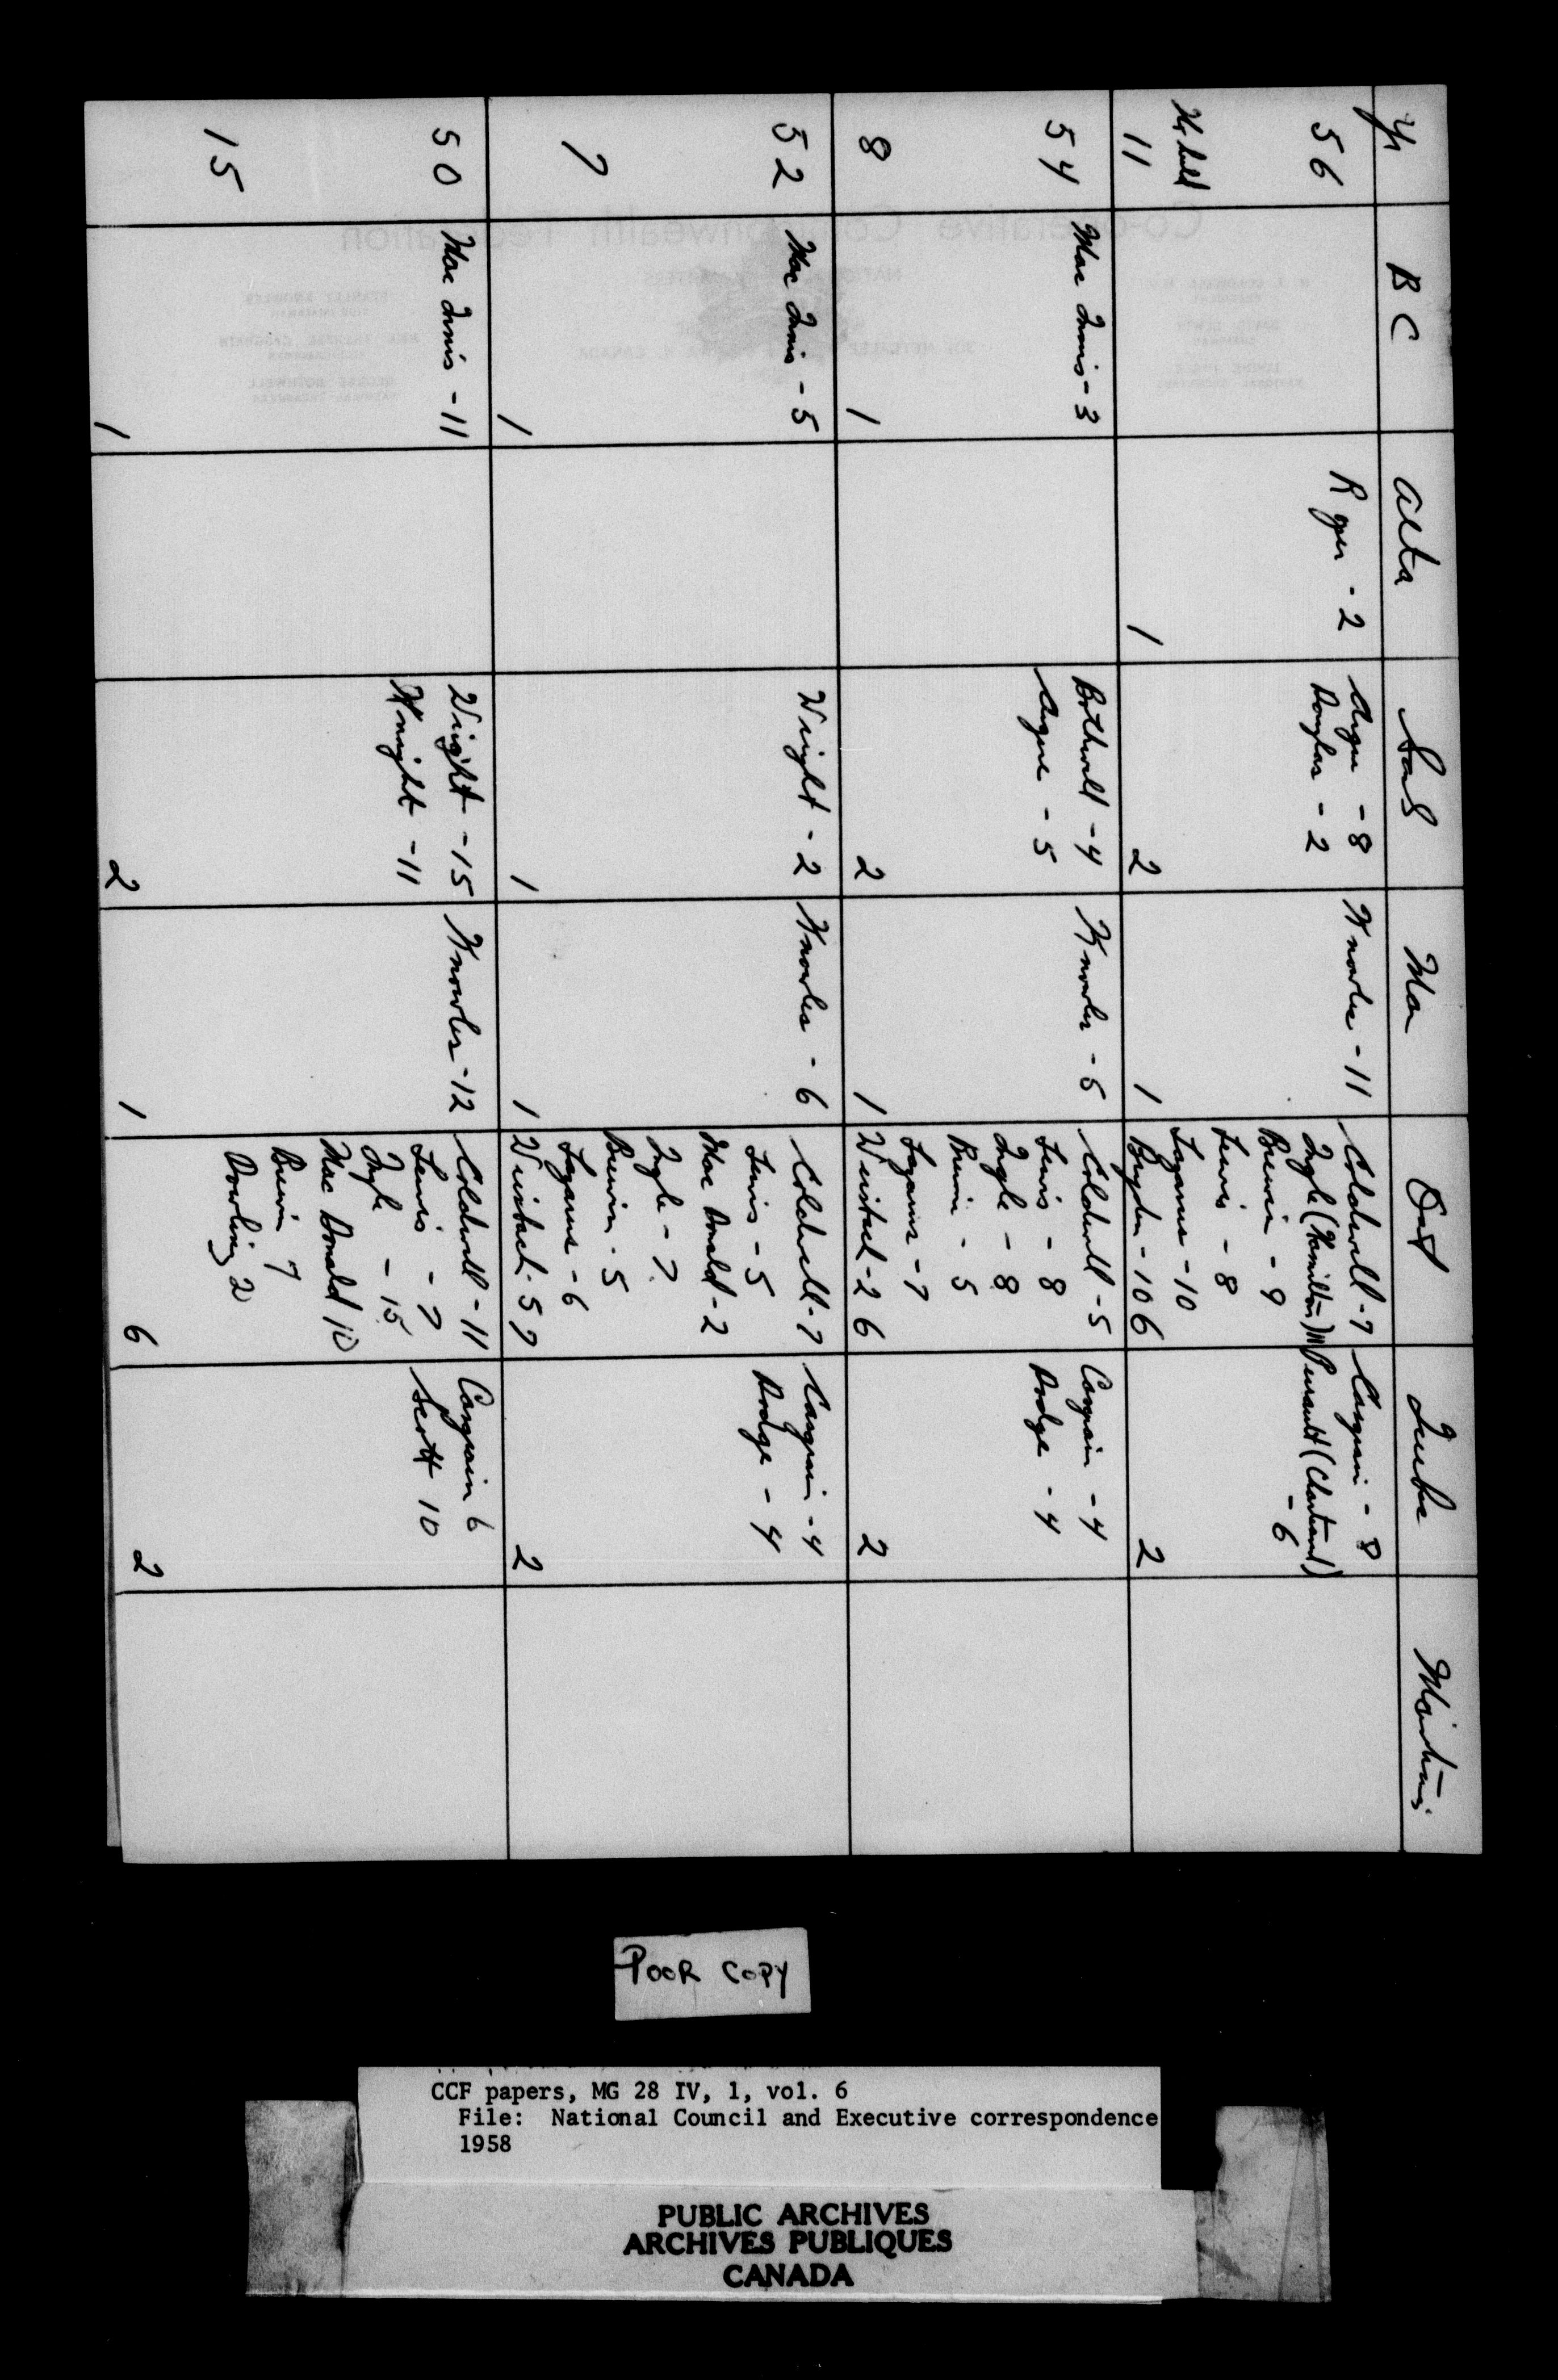 Yr BC Alta Sask Man Ont Quebec Maritimes
56
No held
11
Roper - 2
1
Argue - 8
Douglas - 2
2
Knowles - 11
1
Coldwell - 7
Ingle (Hamilton) 11
Brewin - 9
Lewis - 8
Lazarus - 10
Bryden - 10 6
Casgrain - 8
Perrault (Chartrand)
- 6
2
54
8
Mac Innis - 3
1
Bothwell - 4
Argue - 5
2
Knowles - 5
1
Coldwell - 5
Lewis - 8
Ingle - 8
Brewin - 5
Lazarus - 7
Weisbach - 2 6
Casgrain - 4
Dodge - 4
2
52
7
Mac Innis - 5
1
Wright - 2
1
Knowles - 6
1
Coldwell - 7
Lewis - 5
Mac Donald - 2
Ingle - 7
Brewin - 5
Lazarus - 6
Weisbach - 5 7
Casgrain - 4
Dodge - 4
2
50
15
Mac Innis - 11
1
Wright - 15
Knight - 11
2
Knowles - 12
1
Coldwell - 11
Lewis - 7
Ingle - 15
Mac Donald 10
Brewin 7
Dowling 2
6
Casgrain 6
Scott 10
2
POOR COPY
CCF papers, MG 28 IV, 1, vol. 6
File: National Council and Executive correspondence
1958
PUBLIC ARCHIVES
ARCHIVES PUBLIQUES
CANADA